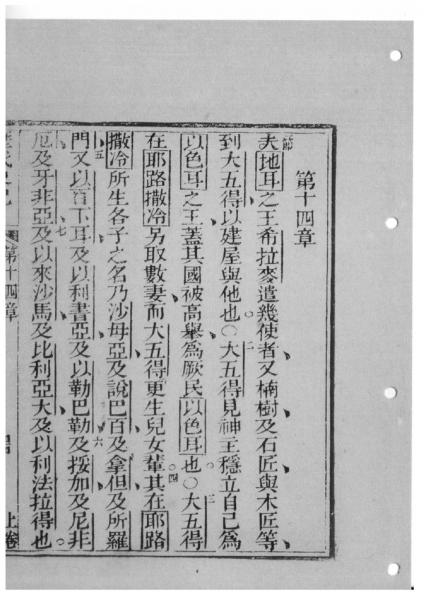 第十四章
節夫地耳之王希拉麥遣幾使者又楠樹及石匠與木匠等
到大五得以建屋與他也○二大五得見神主穩立自己爲
以色耳之王蓋其國被高舉爲厥民以色耳也○三大五得
在耶路撒冷另取數妻而大五得更生兒女輩四其在耶路
撒冷所生各子之名乃沙母亞及說巴百及拿但及所羅
門五又以百下耳及以利書亞及以勒巴勒六及挼加及尼非
厄及牙非亞七及以來沙馬及比利亞大及以利法拉得也
第十四章
上卷